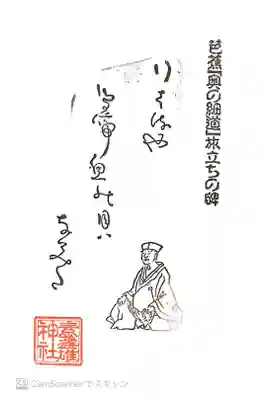 芭蕉「奥の細道」旅立ちの碑
行はるや
鳥啼魚の目ハ
なみた
素盞雄
神社
CamScannerでスキャン